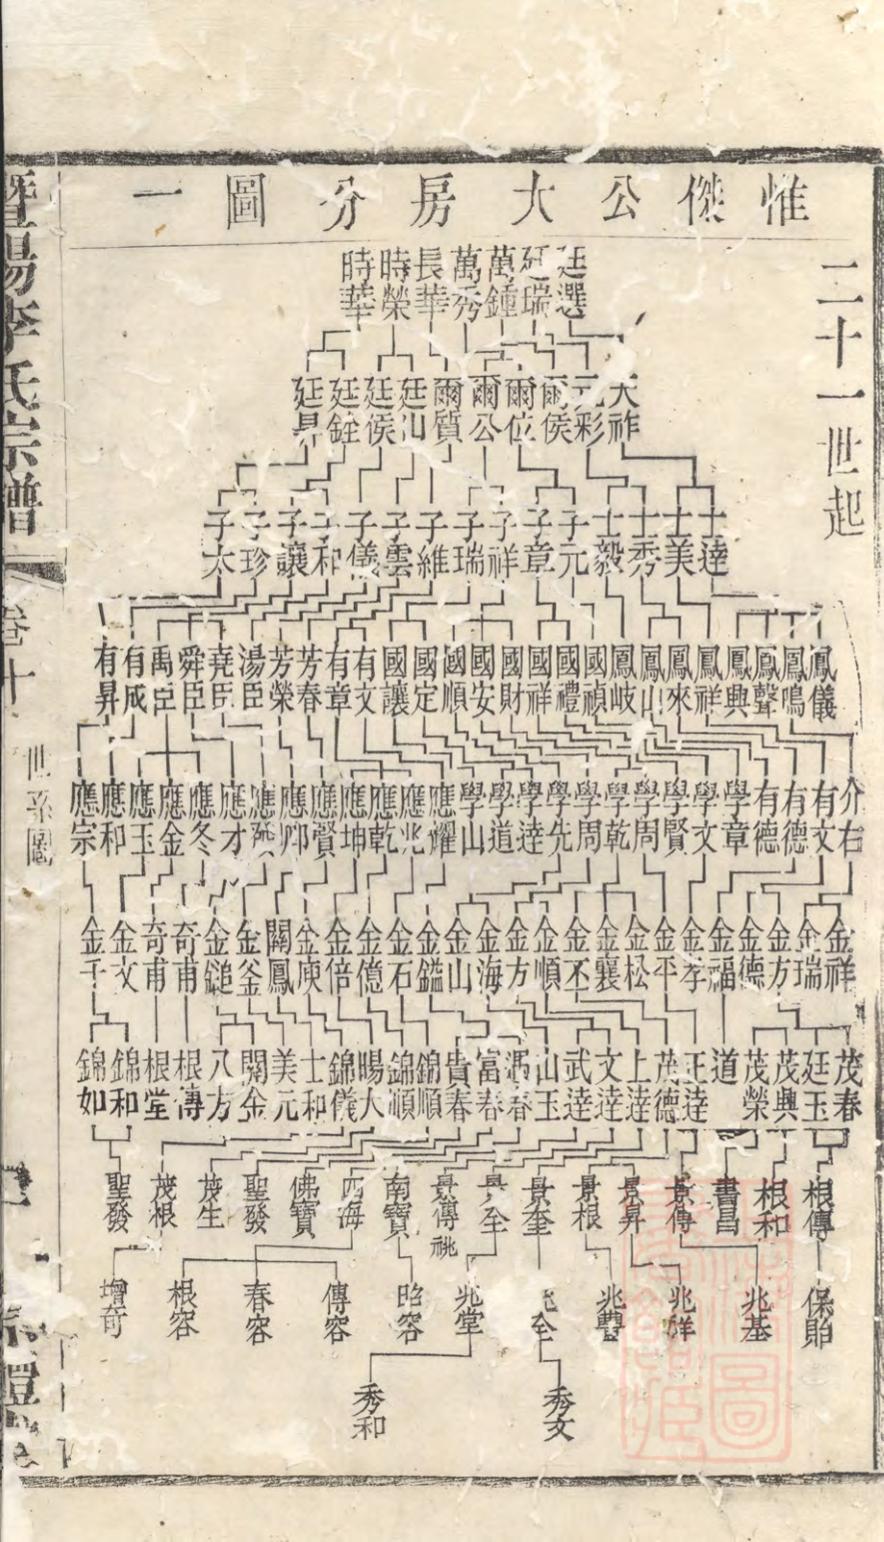 惟傑公大房分圖一
二十一世起
廷選 廷瑞 萬鍾 萬秀 長華 時榮 時華
天祚 元彩 爾侯 爾位 爾公 爾質 廷山 廷侯 廷銓 廷昇
士達 士美 士秀 士毅 子元 子章 子祥 子瑞 子維 子雲 子儀 子和 子讓 子珍 子太
鳳儀 鳳鳴 鳳聲 鳳典 鳳祥 鳳來 鳳山 鳳岐 國禎 國禮 國祥 國財 國安 國順 國定 國讓 有文 有章 芳春 芳榮 湯臣 堯臣 舜臣 禹臣 有成 有昇
介右 有文 有德 有德 學章 學文 學賢 學周 學乾 學周 學先 學達 學道 學山 應耀 應兆 應乾 應坤 應賢 應 應 應才 應冬 應金 應玉 應和 應宗
金祥 金瑞 金方 金德 金福 金孝 金平 金松 金襄 金丕 金順 金方 金海 金山 金鎰 金石 金億 金倍 金庚 開鳳 金釜 金鎚 奇甫 奇甫 金文 金千
茂春 廷玉 茂興 茂榮 道 正達 茂德 上達 文達 武達 山玉 春 富春 貴春 錦順 錦順 暘大 錦儀 士和 美元 開金 八方 根傳 根堂 錦和 錦如
根傳 根和 書昌 景傳 景昇 景根 景奎 全 景傳祧 南寶 西海 佛寶 聖發 茂生 茂根 聖發
保貽 兆基 兆祥 兆豐 兆全 兆堂 昭容 傳容 春容 根容 增奇
秀文 秀和
暨陽李氏宗譜
卷十
世系圖